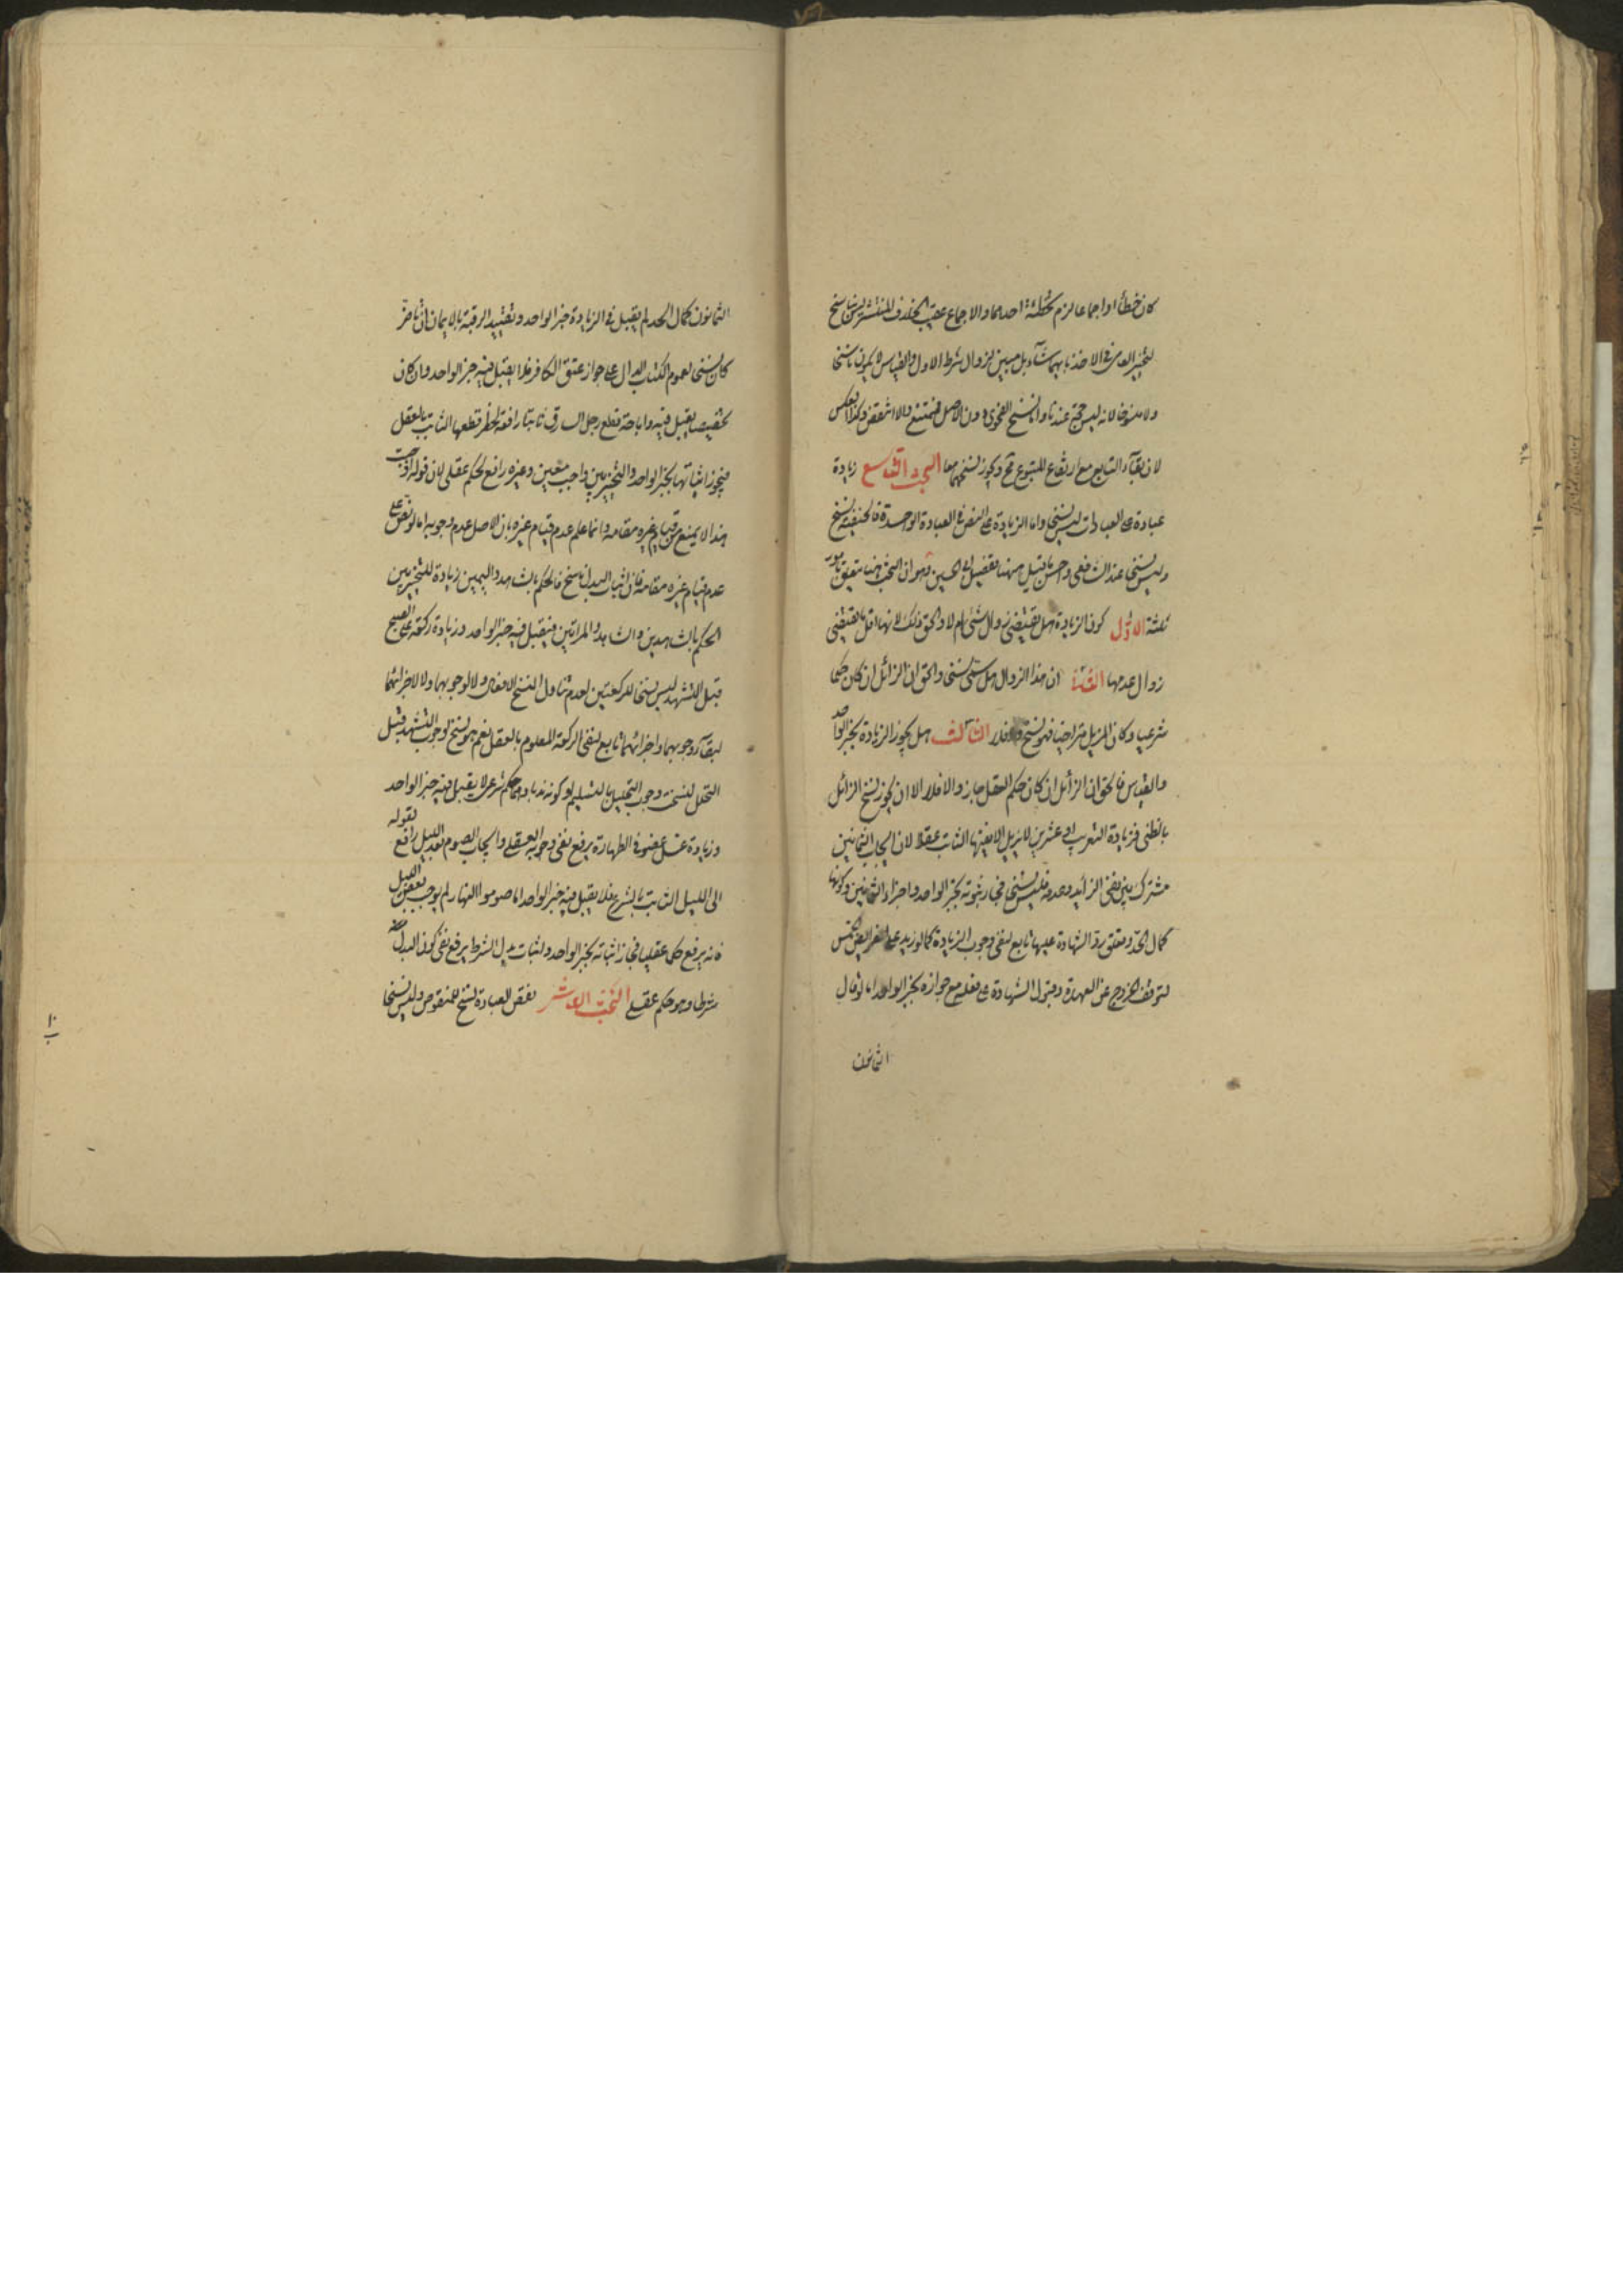 كان خطأ او اجماعا لزم تخطئة احدهما والاجماع عقيب الخلاف المنتشر ليس ناسخ
لتخير العامى فى الاخذ بايهما شاء بل مبين لزوال شرط الاول والقياس لا يكون ناسخا
ولا منسوخا لانه ليس حجة عندنا واما نسخ الفحوى دون الاصل فممتنع والا انتقض وكذا العكس
لان بقاء التابع مع ارتفاع المتبوع مح ويجوز نسخهما معا البحث التاسع زيادة
عبادة على العبادات ليس نسخا واما الزيادة على النص فى العبادة الواحدة فالحنفية نسخ
وليس نسخا عند الشافعى واحسن ما قيل ههنا تفصيل ابى الحسين وهو ان البحث هنا يتعلق بامور
ثلثة الاول كون الزيادة هل تقتضى زوال شئ ام لا والحق ذلك لانها اقل ما تقتضى
زوال عدمها الثانى ان هذا الزوال هل يسمى نسخا والحق ان الزائل ان كان حكما
شرعيا وكان المزيل متراخيا فهو نسخ والا فلا الثالث هل يجوز الزيادة بخبر الواحد
والقياس فالحق ان الزائل ان كان حكم العقل جاز والا فلا الا ان يجوز نسخ الزائل
بالظنى فزيادة التغريب او عشرين لا يزيل الا نفيها الثابت عقلا لان ايجاب الثمانين
مشترك بين نفى الزائد وعدمه فليس نسخا فجاز ثبوته بخبر الواحد واجزاء الثمانين وكونها
كمال الحد وتعلق رد الشهادة عليها تابع لنفى وجوب الزيادة كما لو زيد على الفرائض الخمس
لتوقف الخروج عن العهدة وقبول الشهادة على فعله مع جوازه بخبر الواحد اما لو قال
الثمانون
الثمانون كمال الحد لم يقبل فى الزيادة خبر الواحد وتقييد الرقبة بالايمان ان تاخر
كان نسخا لعموم الكتاب الدال على جواز عتق الكافر فلا يقبل فيه خبر الواحد وان كان
تخصيصا يقبل فيه واباحة قطع رجل السارق ثانيا رافعة لحظر قطعها الثابت بالعقل
فيجوز اثباتها بخبر الواحد والتخيير بين واجب معين وغيره رافع لحكم عقلى لان قوله اوجبت
هذا لا يمنع من قيام غيره مقامه وانما علم عدم قيام غيره بان الاصل عدم وجوبه اما لو نص على
عدم قيام غيره مقامه فان اثبات البدل ناسخ فالحكم بالشاهد واليمين زيادة للتخيير بين
الحكم بالشاهدين والشاهد والمراتين فيقبل فيه خبر الواحد وزيادة ركعة على الصبح
قبل التشهد ليس نسخا للركعتين لعدم تناول النسخ الافعال ولا لوجوبهما ولا لاجزائهما
لبقاء وجوبهما واجزائهما تابع لنفى الركعة المعلوم بالعقل نعم هو نسخ لوجوب التشهد قبل
التحلل لنسخت وجوب التحليل بالتسليم لو كونه ندبا وهما حكم شرعى لا يقبل فيه خبر الواحد
وزيادة غسل عضو فى الطهارة يرفع نفى وجوبه العقلى وايجاب الصوم بعد الليل رافع لقوله
الى الليل الثابت بالشرع فلا يقبل فيه خبر الواحد اما صوموا النهار لم يوجب نفى بعض الليل
فانه يرفع حكما عقليا فجاز اثباته بخبر الواحد واثبات بدل الشرط يرفع نفى كون البدل
شرطا وهو حكم عقلى البحث العاشر نقص العبادة نسخ للمنقوص وليس نسخا